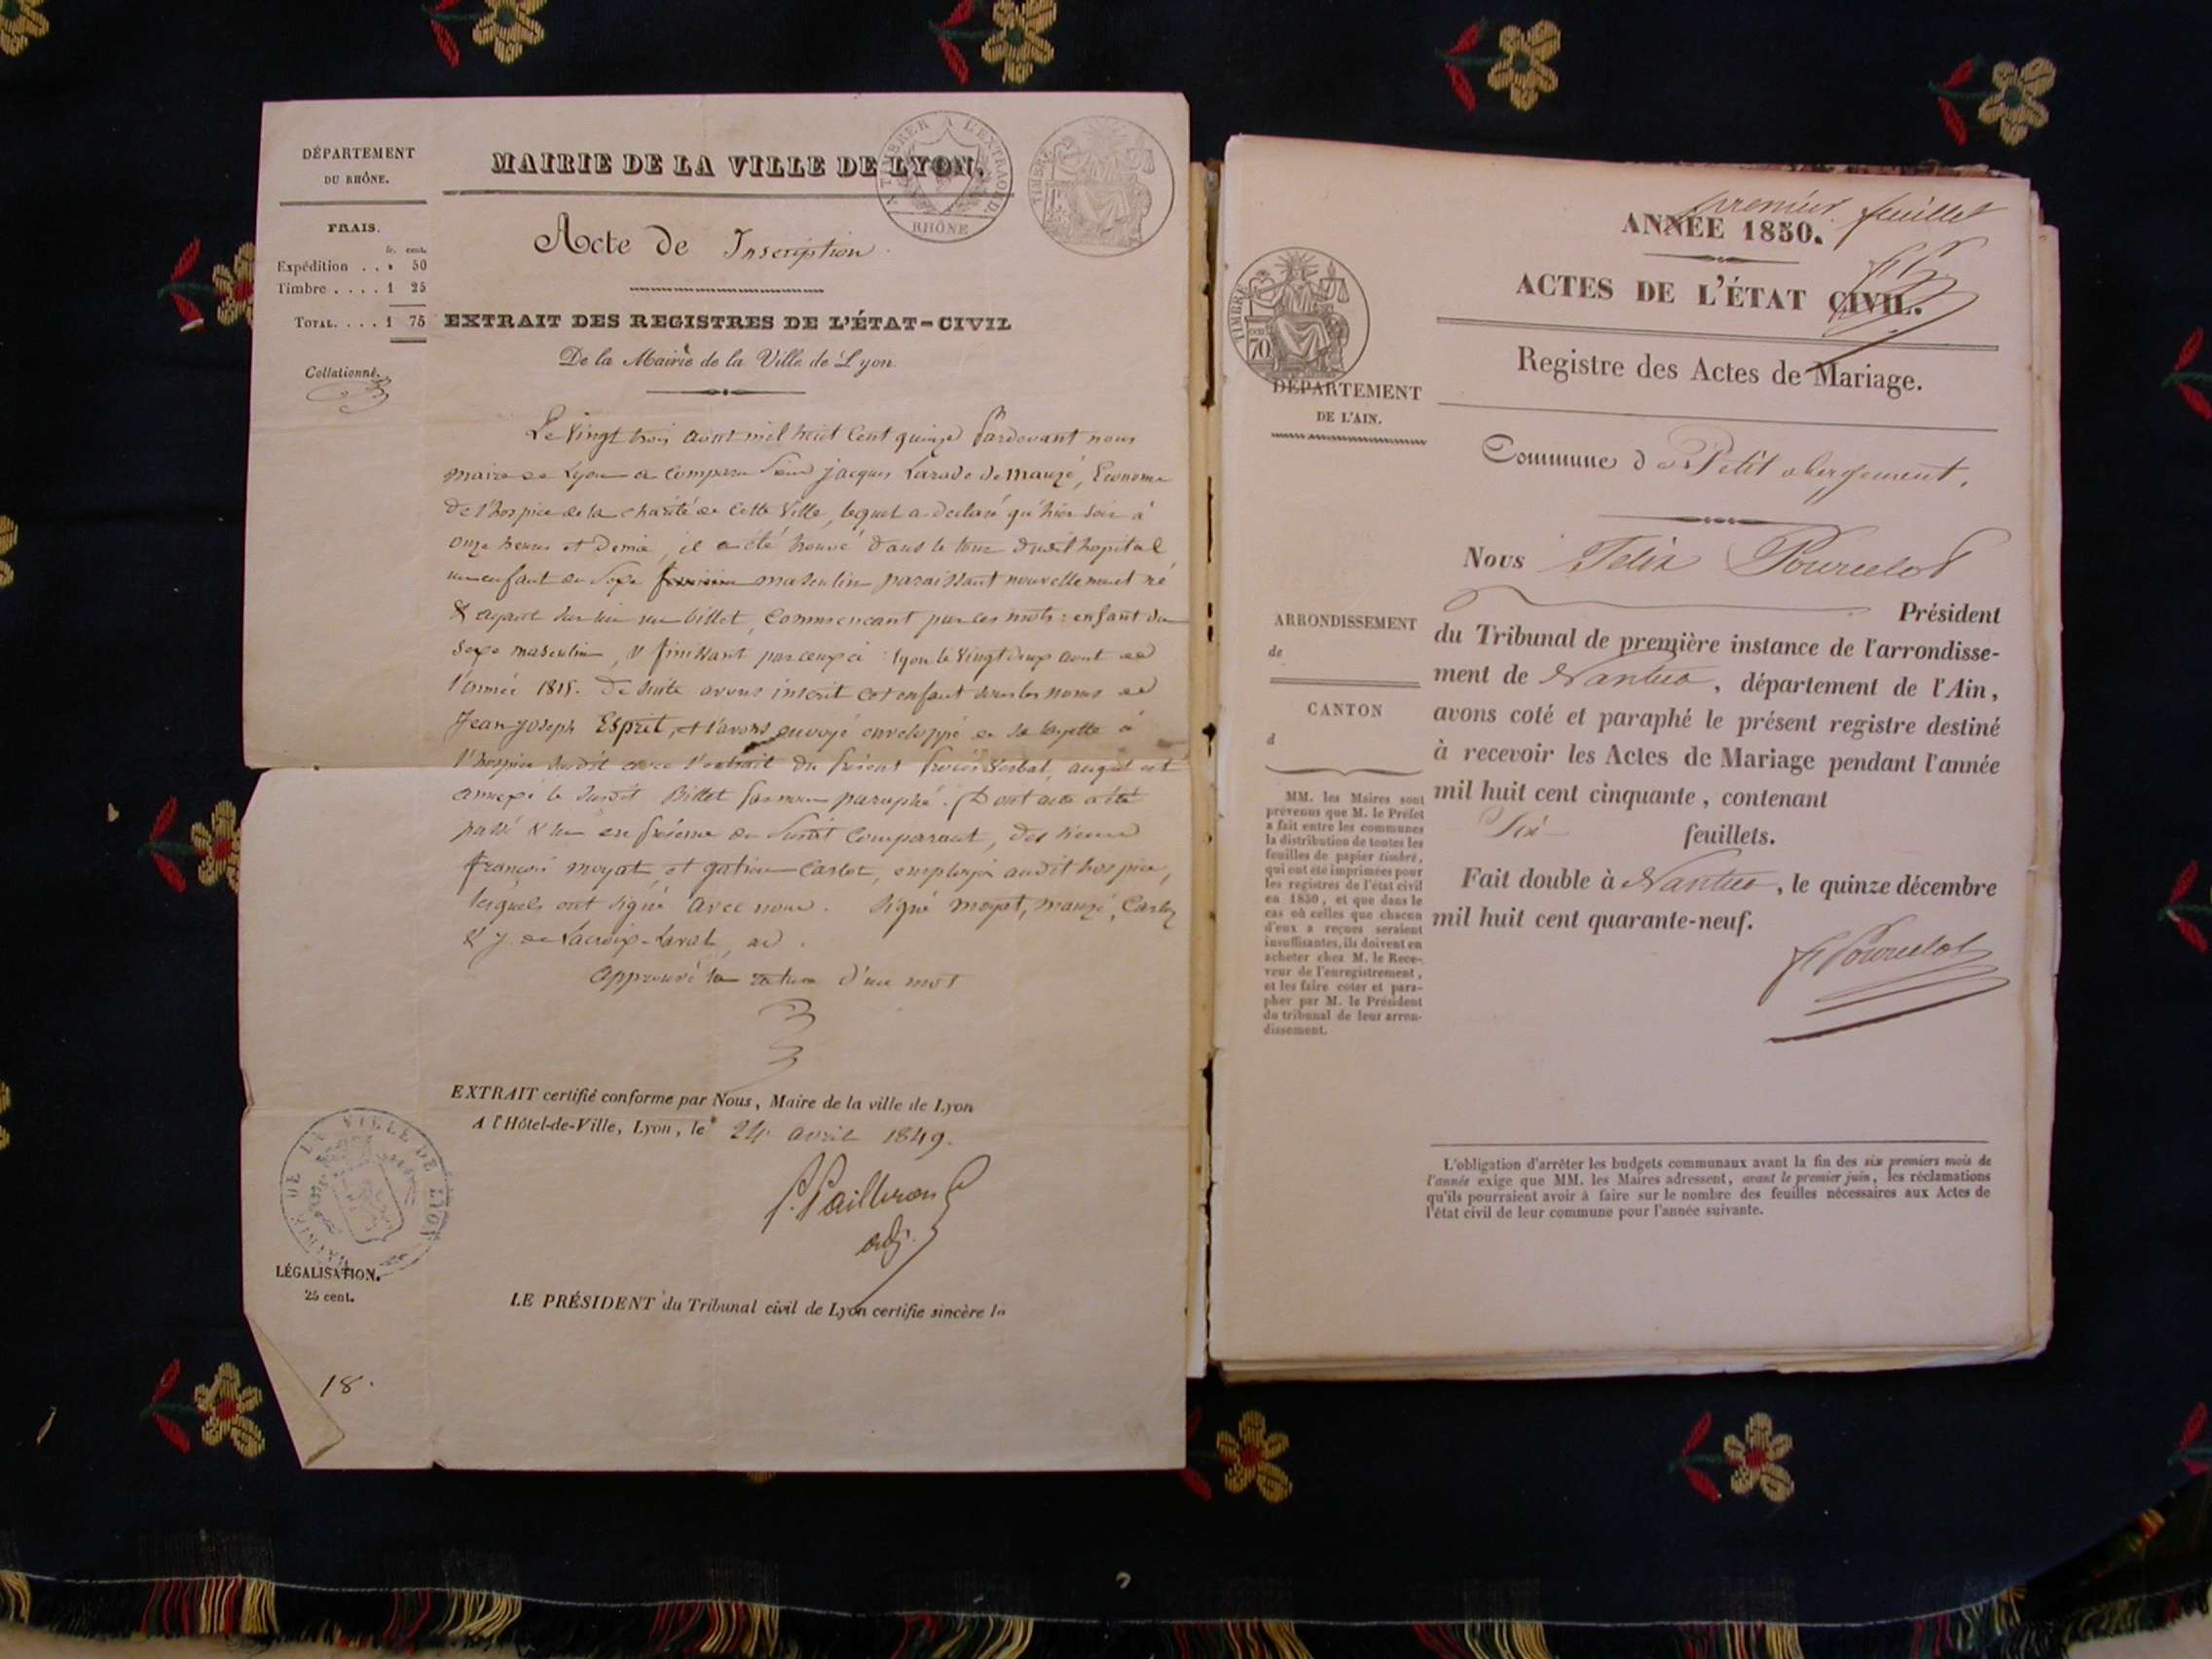 DÉPARTEMENT
DU RHÔNE.
FRAIS.
fr. cent.
Expédition . . » 50
Timbre . . . . 1 25
TOTAL. . . . 1 75
Collationné.
MAIRIE DE LA VILLE DE LYON.
A TIMBRER A L'EXTRAORD.
RHÔNE
TIMBRE
Acte de Inscription
EXTRAIT DES REGISTRES DE L'ÉTAT-CIVIL
De la Mairie de la Ville de Lyon.
Le Vingt trois août mil huit Cent quinze Pardevant nous
maire de Lyon a comparu Sieur jacques Larade de Mauzé, Econome
De l'hospice de la charité de Cette Ville, lequel a déclaré qu'hier soir à
onze heures et demie, il a été trouvé dans le tour dudit hopital
un enfant du Sexe féminin masculin paraissant nouvellement né
& ayant sur lui un billet, Commencant par ces mots : enfant du
Sexe masculin, & finissant par ceux ci : lyon le Vingt deux août de
l'année 1815. De suite avons inscrit cet enfant sous les noms de
Jean joseph Esprit, et l'avons envoyé enveloppé de sa layette à
l'hospice susdit avec l'extrait du présent procès Verbal, auquel est
annexé le susdit Billet par nous paraphé. Dont acte a été
passé & lu en présence du Susdit Comparant, des sieurs
françois moyat, et gatien Carlot, employés audit hospice,
lesquels ont signé avec nous. Signé moyat, mauzé, Carlot
& J. de Lacroix-Laval, ad.
approuvé la rature d'un mot
EXTRAIT certifié conforme par Nous, Maire de la ville de Lyon
A l'Hôtel-de-Ville, Lyon, le 24 avril 1849.
adj.
MAIRIE DE LA VILLE DE LYON
LÉGALISATION.
25 cent.
LE PRÉSIDENT du Tribunal civil de Lyon certifie sincère la
18.
premier feuillet
ANNÉE 1850.
ACTES DE L'ÉTAT CIVIL.
Registre des Actes de Mariage.
TIMBRE
70
DÉPARTEMENT
DE L'AIN.
Commune de Petit abergement.
Nous Felix Pourcelot
Président
du Tribunal de première instance de l'arrondisse-
ment de Nantua, département de l'Ain,
avons coté et paraphé le présent registre destiné
à recevoir les Actes de Mariage pendant l'année
mil huit cent cinquante, contenant
Six feuillets.
Fait double à Nantua, le quinze décembre
mil huit cent quarante-neuf.
F Pourcelot
ARRONDISSEMENT
de
CANTON
d
MM. les Maires sont
prévenus que M. le Préfet
a fait entre les communes
la distribution de toutes les
feuilles de papier timbré,
qui ont été imprimées pour
les registres de l'état civil
en 1850, et que dans le
cas où celles que chacun
d'eux a reçues seraient
insuffisantes, ils doivent en
acheter chez M. le Rece-
veur de l'enregistrement,
et les faire coter et para-
pher par M. le Président
du tribunal de leur arron-
dissement.
L'obligation d'arrêter les budgets communaux avant la fin des six premiers mois de
l'année exige que MM. les Maires adressent, avant le premier juin, les réclamations
qu'ils pourraient avoir à faire sur le nombre des feuilles nécessaires aux Actes de
l'état civil de leur commune pour l'année suivante.